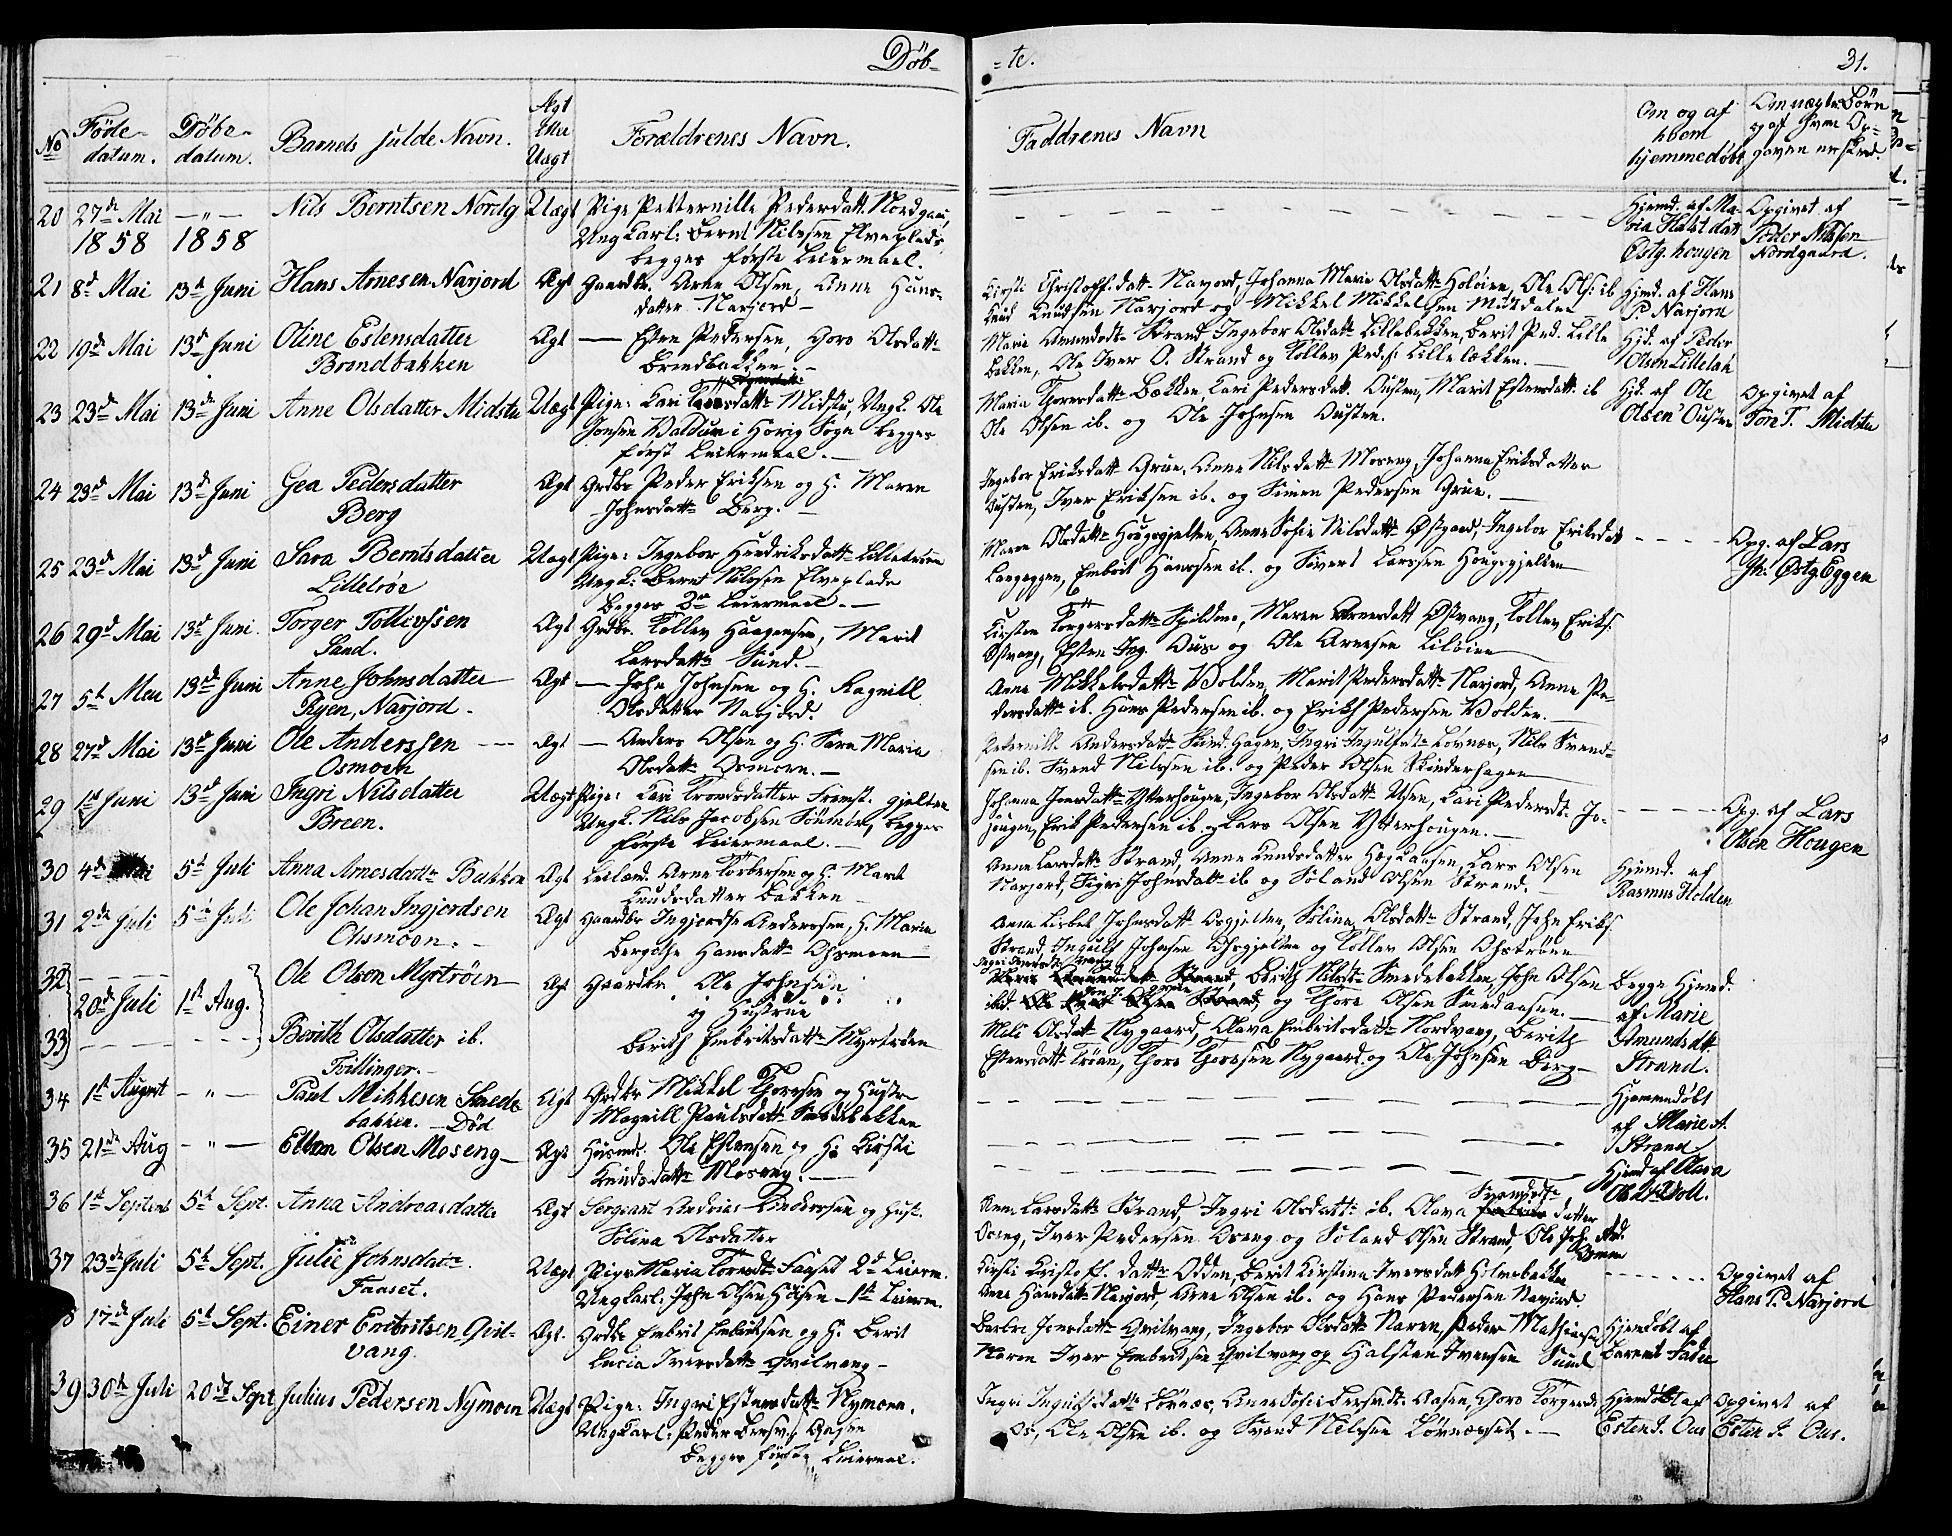 Döb- -te. 31.
No Føde-datum. Döbe-datum. Barnets fulde Navn. Ægt Eller Uægt Forældrenes Navn. Faddrenes Navn Om og af hvem hjemmedøbt Om uægte Börn og af hvem Opgaven er skeed.
20 27de Mai 1858 —"— 1858 Nils Berntsen Nordg Uægt Pige Petternille Pedersdatt. Nordgaard,
Ungkarl: Bernt Nilssen Elveplads,
begges første Leiermaal.
Hjemd. af Maria Halstdatt Østg.hougen
Opgivet af Peder Nilssen Nordgaard.
21 8de Mai 13de Juni Hans Arnesen Narjord Ægt Gaardbr. Arne Olsen, Anne Hans-
datter Narjord —
Kirsti Christophs.datt. Narjord, Johanna Marie Olsdatt. Holöien, Ole Ols: ib
Knud Knudsen Narjord og Mikkel Mikkelsen
Hjemd. af Hans P. Narjord
22 19de Mai 13de Juni Oline Estensdatter Brendbakken Ægt — Esten Pedersen, Goro Olsdatt.
Brendbakken. —
Marie Amundsdt. Strand, Ingebor Olsdatt. Lillebakken, Berit Ped. Lille
bakken, Ole Iver O. Strand og Tollev Peds: Lillebakken.
Hjd. af Peder Olsen Lillebak
23 23de Mai 13de Juni Anne Olsdatter Midtstu Uægt Pige: Kari Midtstu, Ungk. Ole
Jonsen Valdum i Sogn begges
først Leiermaal. —
Maria Thoresdatt. Bakken, Kari Pedersdatt. Ousten, Marit Estensdatt. ib
Ole Olsen ib. og Ole Johnsen Ousten.
Hjd. af Ole Olsen Ousten
Opgivet af Tore T. Midtstu
24 23de Mai 13de Juni Gea Pedersdatter Berg Ægt Grdbr. Peder Eriksen og H. Maren
Johnsdatt. Berg. —
Ingebor Eriksdatt. Grue, Anne Nilsdatt. Moseng, Johanna Eriksdatter
Ousten, Iver Eriksen ib. og Simen Pedersen Grue. —
25 23de Mai 13de Juni Sara Berntsdatter Lilletröe Uægt Pige: Ingebor Hendriksdatt. Lilletröen
Ungk: Bernt Nilssen Elveplads
begges 2det Leiermaal. —
Maren Olsdatt. Hougsgjelten, Anne Sofie Nilsdatt. Østgaard, Ingebor Eriksdatt.
Langeggen, Embret Hansen ib. og Sivert Larssen Hougsgjelten
Opg. af Lars Jh. Østg.Eggen
26 29de Mai 13de Juni. Torger Tollevssen Sand. Ægt Grdbr. Tollev Haagensen, Marit
Larsdatt. Sund. —
Kirsten Torgersdatt. Spildmo, Maren Arnesdatt Østvang, Tollev Eriks.
Østvang, Esten Ing. Ous og Ole Arnesen Liløien
27 5te Mai 13de Juni Anne Johnsdatter Ryen, Narjord. Ægt — John Johnsen og H. Ragnill
Olsdatter Narjord.
Anne Mikkelsdatt. Volden, Marit Pedersdatt. Narjord, Anne Pe-
dersdatt. ib. Hans Pedersen ib. og Erich Pedersen Volden. —
28 27de Mai 13de Juni Ole Anderssen Osmoen Ægt — Anders Olsen og H. Sara Maria
Olsdatt. Osmoen. —
Peternille Andersdatt. Skind.hagen, Ingri Ingulfsdt. Lövnæs, Nils Svend-
sen ib. Svend Nilssen ib. og Peder Olsen Skinderhagen
29 1st Juni 13de Juni Ingri Nilsdatter Breen. Uægt Pige: Kari Trondsdatter Fremst. gjelten
Ungk. Nils Jacobsen begges
første Leiermaal. —
Johanna Jonsdatt. Ytterhougen, Ingebor Olsdatt. Kari Pedersdt. Jo-
hougen, Erik Pedersen ib. og Lars Olsen Ytterhougen. —
Opg. af Lars Olsen Hougen
30 4de 5te Juli Anna Arnesdatt. Bakken Ægt Leilænd. Arne Torbersen og H. Marit
Knudsdatter Bakken —
Anne Larsdatt. Strand, Anne Knudsdatter Lars Olsen
Narjord, Sigri Johnsdatt. ib og Soland Olsen Strand. —
Hjemd. af Rasmus Holden
31 2de Juli 5te Juli Ole Johan Ingjordsen Osmoen. — Ægt Gaardbr Ingjord Anderssen, H. Maria
Bergithe Hansdatt. Osmoen
Anne Lisbet Johnsdatt. Solina Olsdatt. Strand, John Eriks.
Strand, Ingulf Johnsen og Tollev Olsen
32 20de Juli 1st Aug. Ole Olsen Myrtröen Ægt Gaardbr. Ole Johnsen
og Hustrue
33 Berith Olsdatter ib. Tvillinger. — Berith Embretsdatt. Myrtröen
Berith Nilsdt. Smedebakken, John Olsen
ibid. og Thore Olsen Smedaasen.
Meli Olsdatt. Nygaard, Olava Embretsdatt. Nordvang, Berith
Estensdatt. Tröan, Thore Thoresen Nygaard og Ole Johnsen Berg —
Begge Hjemd. af Marie Amundsdtt. Strand.
34 1st August —"— Paul Mikkesen Smedebakken. — Död Ægt Grdbr Mikkel Thoresen og Hustr
Magnill Paulsdatt. Smedebakken
Hjemmedöbt af Marie A. Strand
35 21de Aug —"— Esten Olsen Moseng — Ægt Huusmd. Ole Estensen og H. Kirsti
Knudsdatt. Moseng. —
Hjemd af Olava Olsdt Voll.
36 1st Septemb 5te Sept. Anna Andreasdatter Ægt Sergeant Andreas Anderssen og Hust.
Solina Olsdatter
Anne Larsdatt. Strand, Ingri Olsdatt. ib. Olava Svendsdt.
Oseng, Iver Pedersen Oseng og Soland Olsen Strand, Ole Joh.
37 23de Juli 5te Sept. Julie Johnsdatt. Faaset. Uægt Pige Maria Toresdt. Faaset 2de Leierm.
Ungkarl: John Olsen — 1st Leierm.
Kirsti Kristofs. datt. Odden, Berit Kirstine Iversdatt Holmebakken
Ane Hansdatt. Narjord, Arne Olsen ib. og Hans Pedersen Narjord.
Opgivet af Hans P. Narjord
38 17de Juli 5te Sept. Einer Embretsen Qvilvang. Ægt. Grdbr Embret Embretsen og H. Berit
Lucia Iversdatt. Qvilvang —
Barbro Jonsdatt. Qvilvang, Ingebor Olsdatt. Naren, Peder Mathiesen
Naren Iver Embretsen Qvilvang og Halsten Iversen Sund
Hjemdöbt af Barnets Fader
39 30de Juli 20de Sept Julius Pedersen Nymoen Uægt Pige: Ingri Estensdatt. Nymoen.
Ungkarl: Peder Aasen
begges første Leiermaal.
Ingri Ingulfsdatt. Lövnæs, Ane Sofie Aasen, Goro Torgersd.
Os, Ole Olsen ib. og Svend Nilssen Lövnæsset. —
Hjemdöbt af Esten I. Ous
Opgivet af Esten I. Ous.